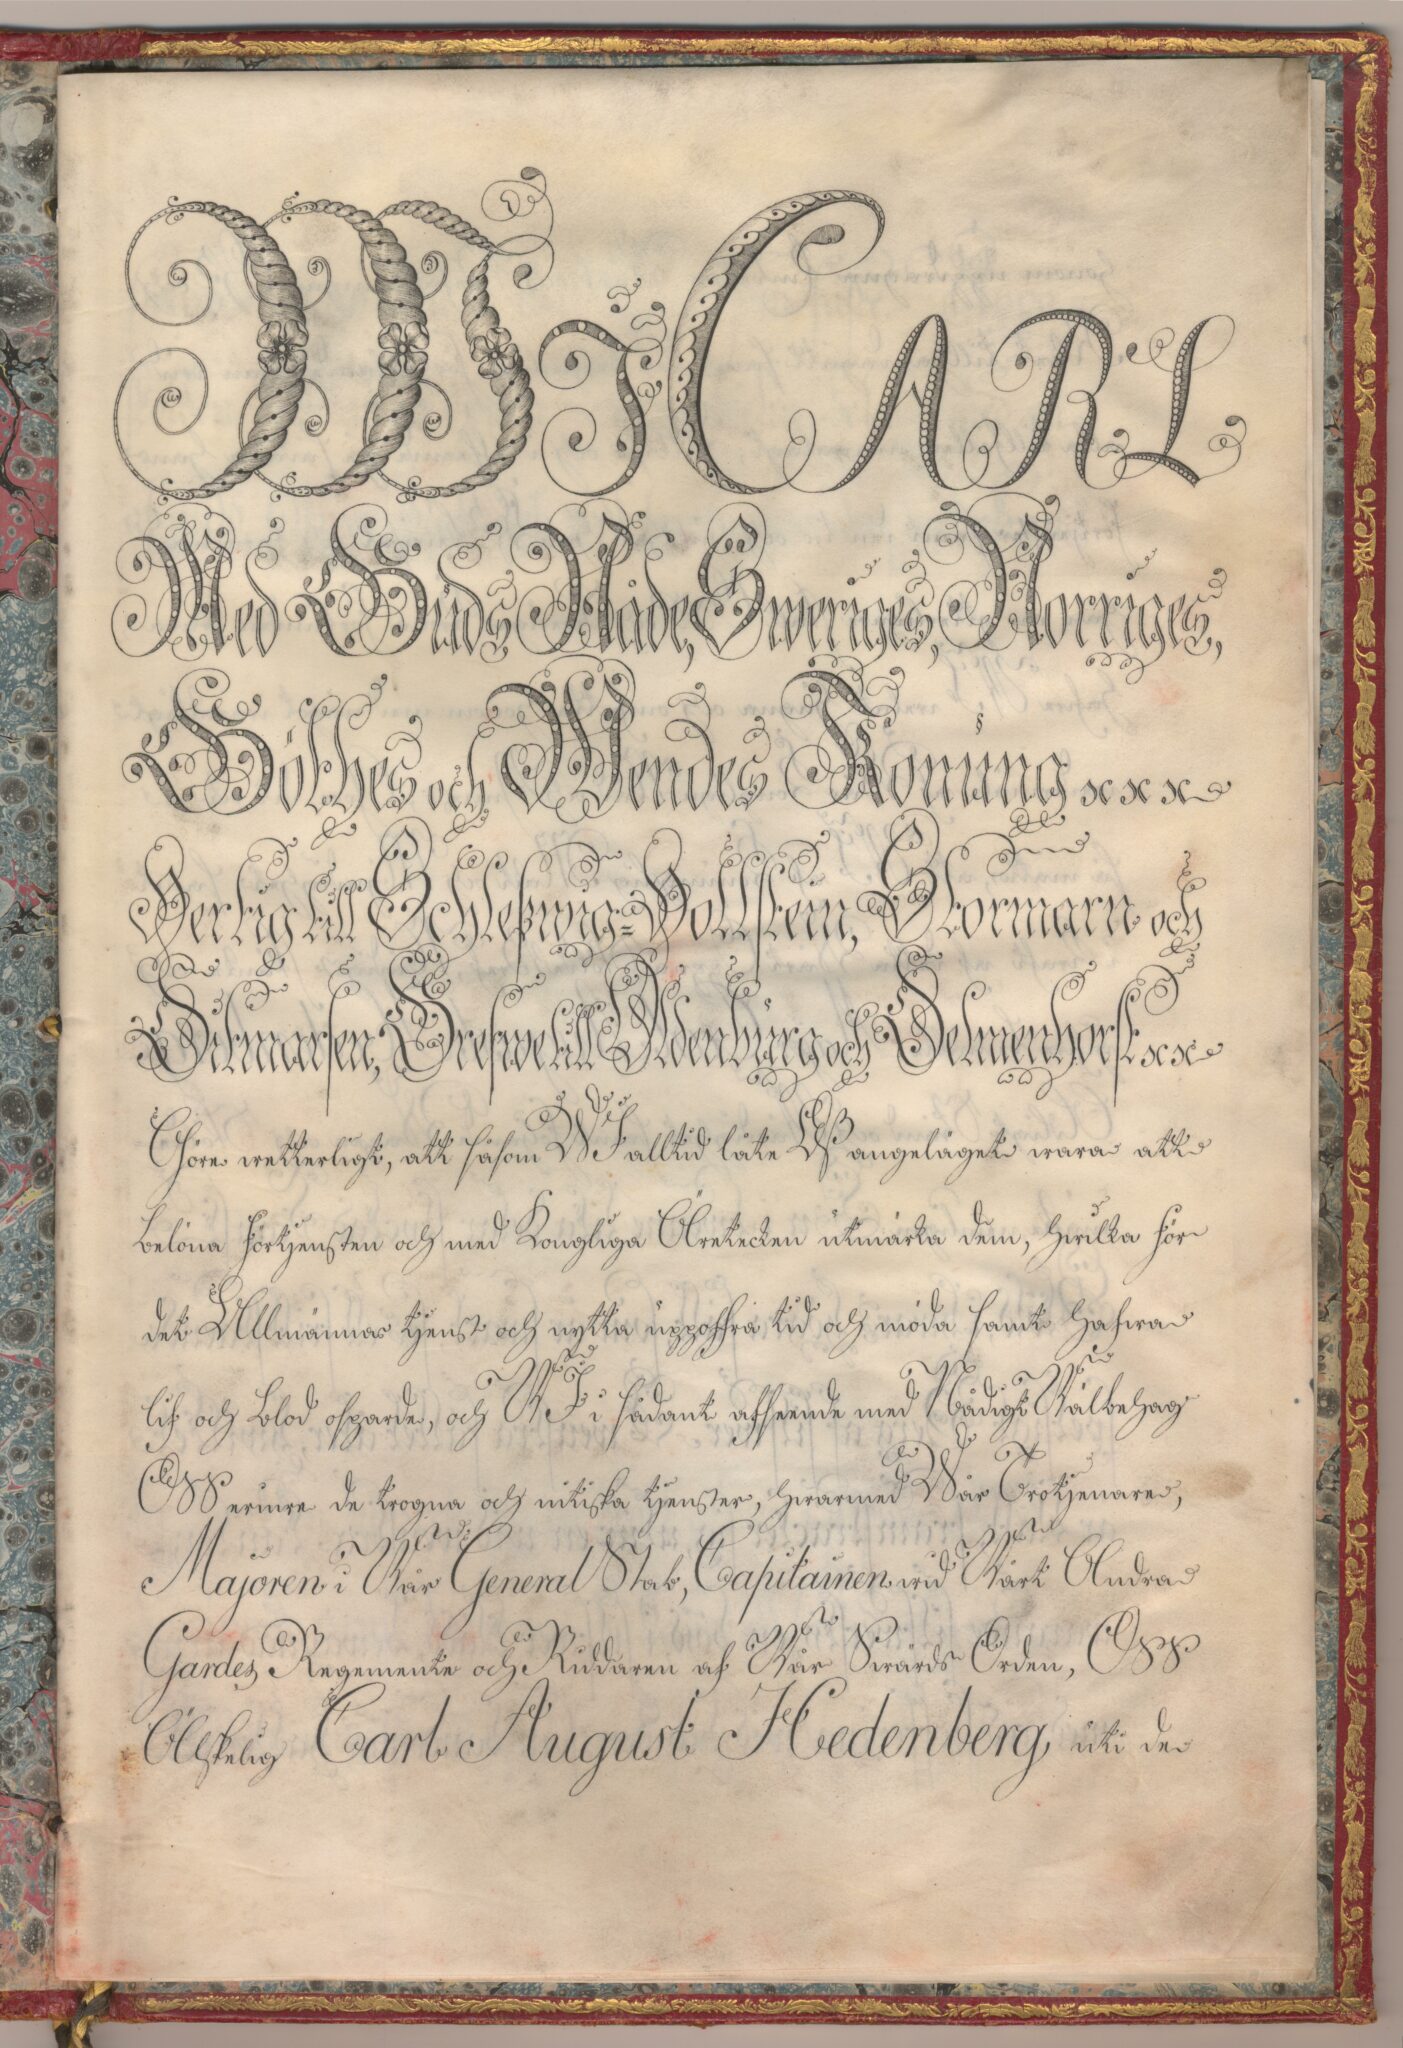 Wi CARL
Med Guds Nåde, Sweriges, Norriges,
Göthes och Wendes Konung xxx
Hertig till Schleßwig=Hollstein, Stormarn och
Ditmarsen, Grefwe till Oldenburg och Delmenhorst xx
Göre wetterligt, att såsom WJ alltid låte Oß angeläget wara att
belöna förtjensten och med Kongliga Äretecken utmärka dem, hwilka för
det Allmännas tjenst och nytta uppoffra tid och möda samt hafwa
lif och blod ospardt, och WJ i sådant afseende med Nådigt Wälbehag
OSS erinre de trogna och nitiska tjenster, hwarmed Wår Trotjenare,
Majoren i Wår General Stab, Capitainen wid Wårt Andra
Gardes Regemente och Riddaren af Wår Swärds Orden, OSS
Älskelig Carl August Hedenberg, uti de